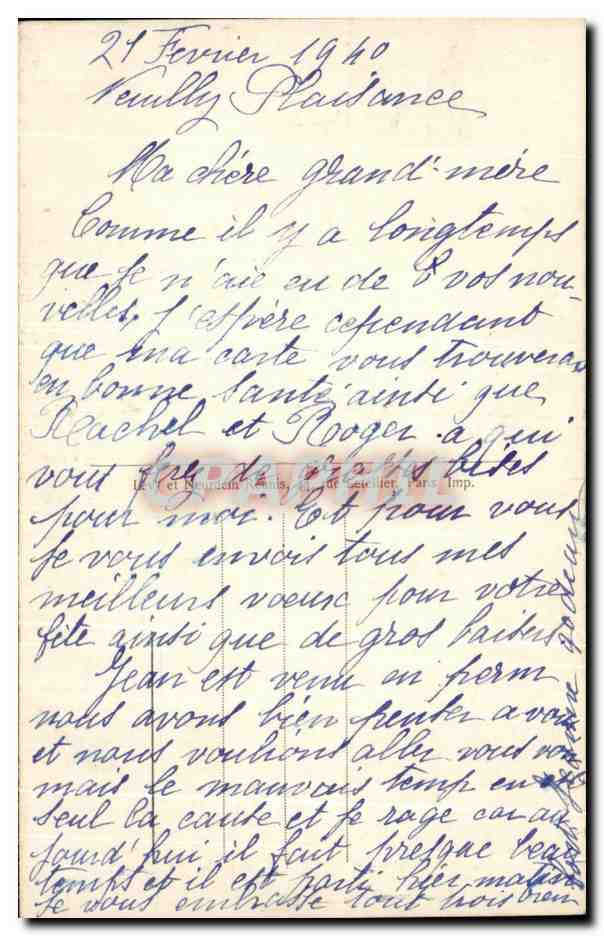 21 Fevrier 1940
Neuilly Plaisance
Ma chére grand'mére
Comme il y a longtemps
que je n'aie eu de vos nou-
velles, j'espère cependant
que ma carte vous trouveras
en bonne santé ainsi que
Rachel et Roger a qui
vous de bises
Lévy et Neurdein Réunis, rue Letellier, Paris Imp.
pour moi. Et pour vous
je vous envois tous mes
meilleurs voeux pour votre
fête ainsi que de gros baisers
Jean est venu en perm
nous avons bien penser a vous
et nous voulions aller vous voir
mais le mauvais temp en est
seul la cause et je rage car au
jourd'hui il fait presque beau
temps et il est parti hier matin
je vous embrasse tout trois bien